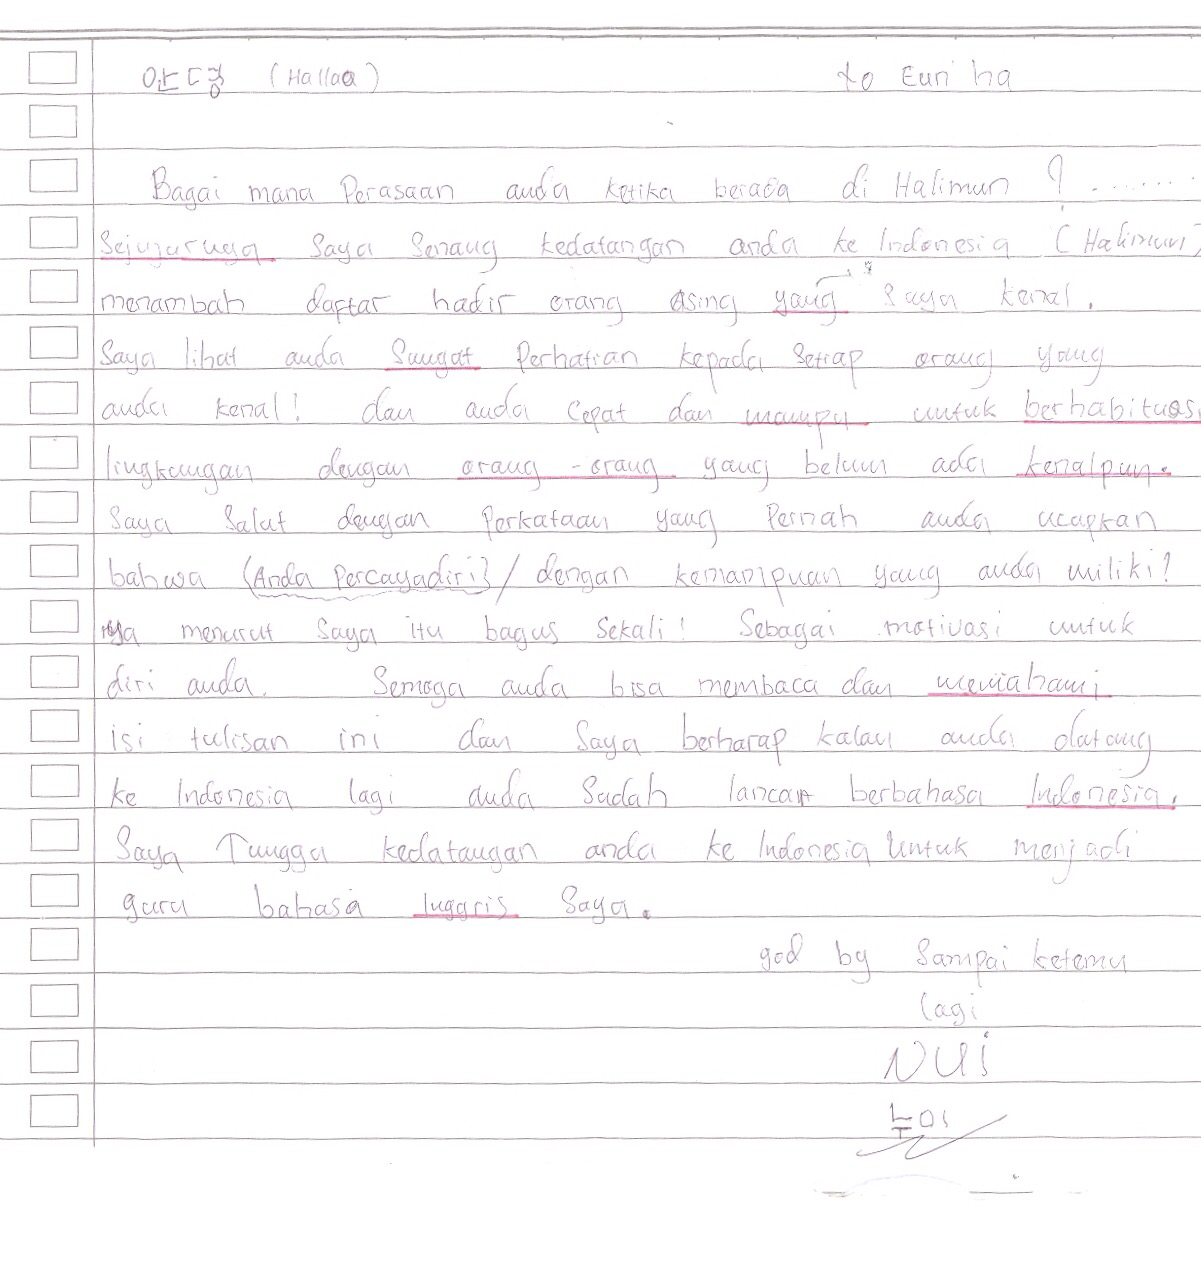 안녕 (Hallaa) to Eun ha
Bagai mana Perasaan anda ketika berada di Halimun ? ........
Sejujurnya Saya Senang kedatangan anda ke Indonesia (Halimun)
menambah daftar hadir orang asing yang Saya kenal.
Saya lihat anda Sangat Perhatian kepada Setiap orang yang
anda kenal! dan anda Cepat dan mampu untuk berhabituasi
lingkungan dengan orang-orang yang belum ada kenalpun.
Saya Salut dengan Perkataan yang Pernah anda ucapkan
bahwa (Anda Percayadiri)/dengan kemampuan yang anda miliki?
Ya menurut Saya itu bagus Sekali! Sebagai motivasi untuk
diri anda. Semoga anda bisa membaca dan memahami
isi tulisan ini dan Saya berharap kalau anda datang
ke Indonesia lagi anda Sudah lancar berbahasa Indonesia.
Saya Tunggu kedatangan anda ke Indonesia Untuk menjadi
guru bahasa Inggris Saya.
god by Sampai ketemu
lagi
NUi
누이